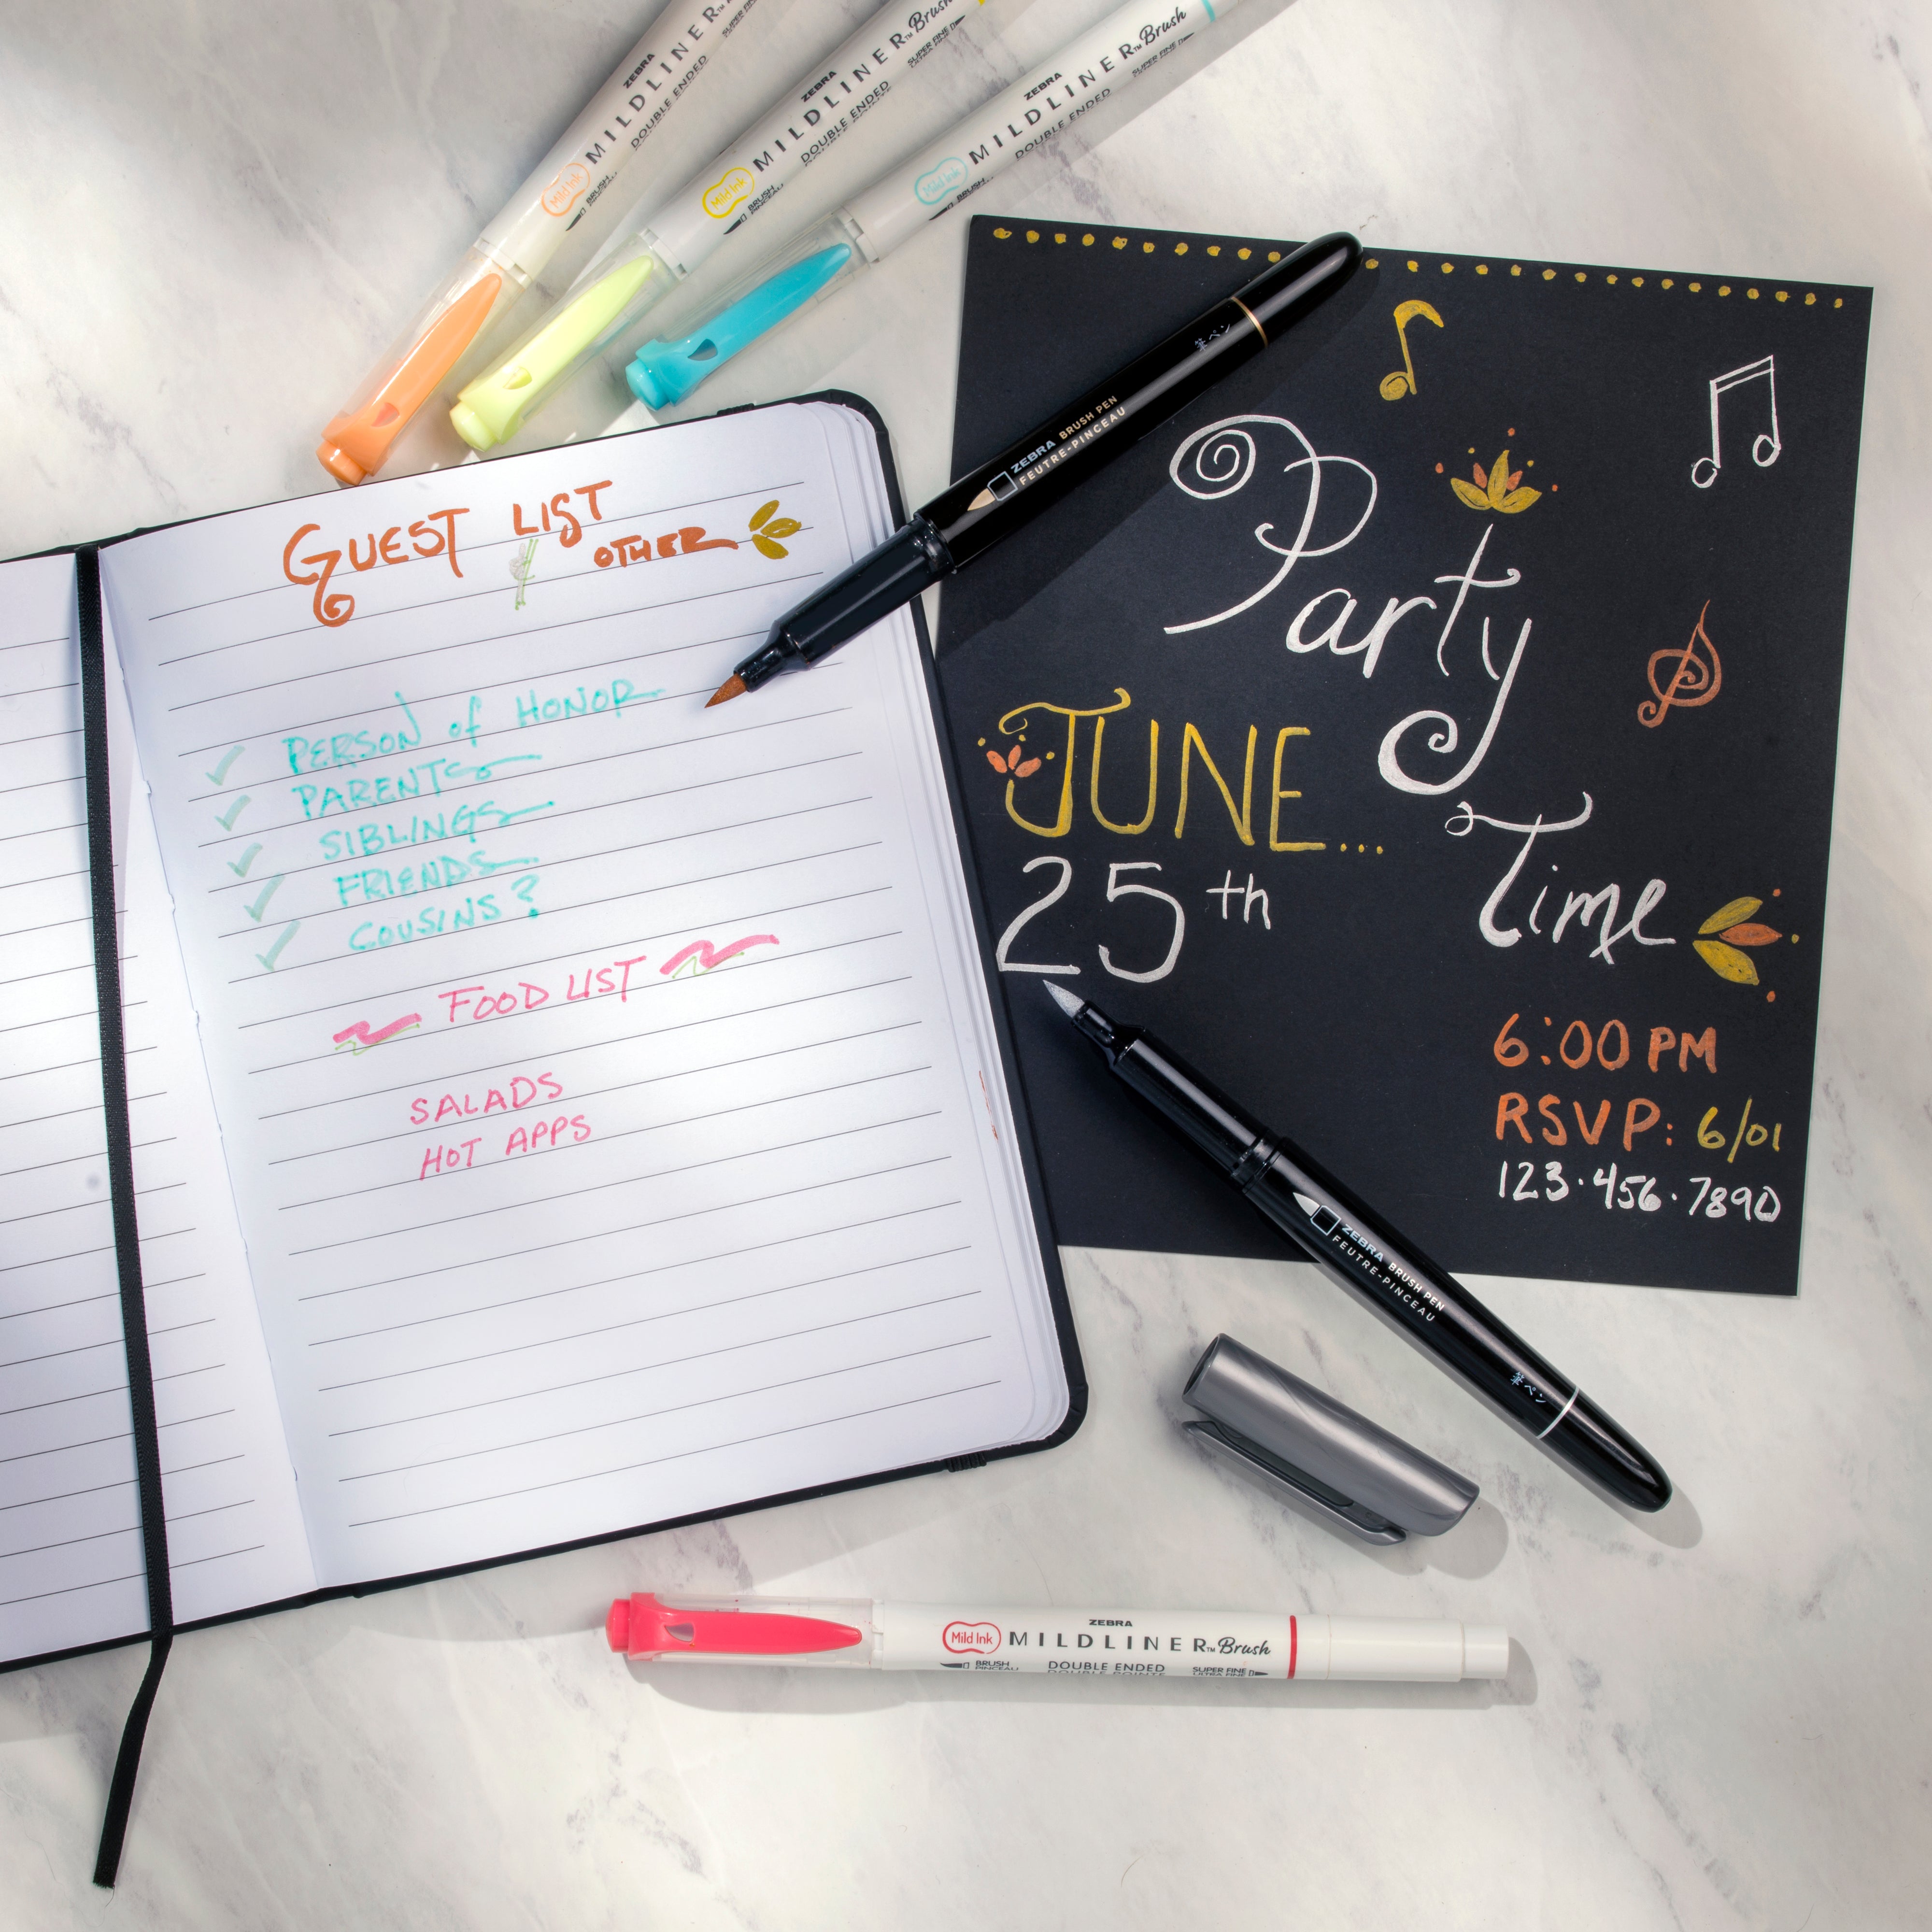 ZEBRA
MILDLINER
DOUBLE ENDED
Mild Ink
BRUSH
ZEBRA
MILDLINER™ Brush
DOUBLE ENDED
SUPER FINE
Mild Ink
BRUSH
PINCEAU
ZEBRA
MILDLINER™ Brush
DOUBLE ENDED
SUPER FINE
Mild Ink
BRUSH
GUEST LIST
& OTHER
PERSON of HONOR
PARENTS
SIBLINGS
FRIENDS
COUSINS?
FOOD LIST
SALADS
HOT APPS
ZEBRA BRUSH PEN
FEUTRE-PINCEAU
筆ペン
Party
Time
JUNE...
25th
6:00 PM
RSVP: 6/01
123·456·7890
ZEBRA BRUSH PEN
FEUTRE-PINCEAU
筆ペン
ZEBRA
Mild Ink MILDLINER™ Brush
BRUSH DOUBLE ENDED SUPER FINE
PINCEAU DOUBLE POINTE ULTRA FINE